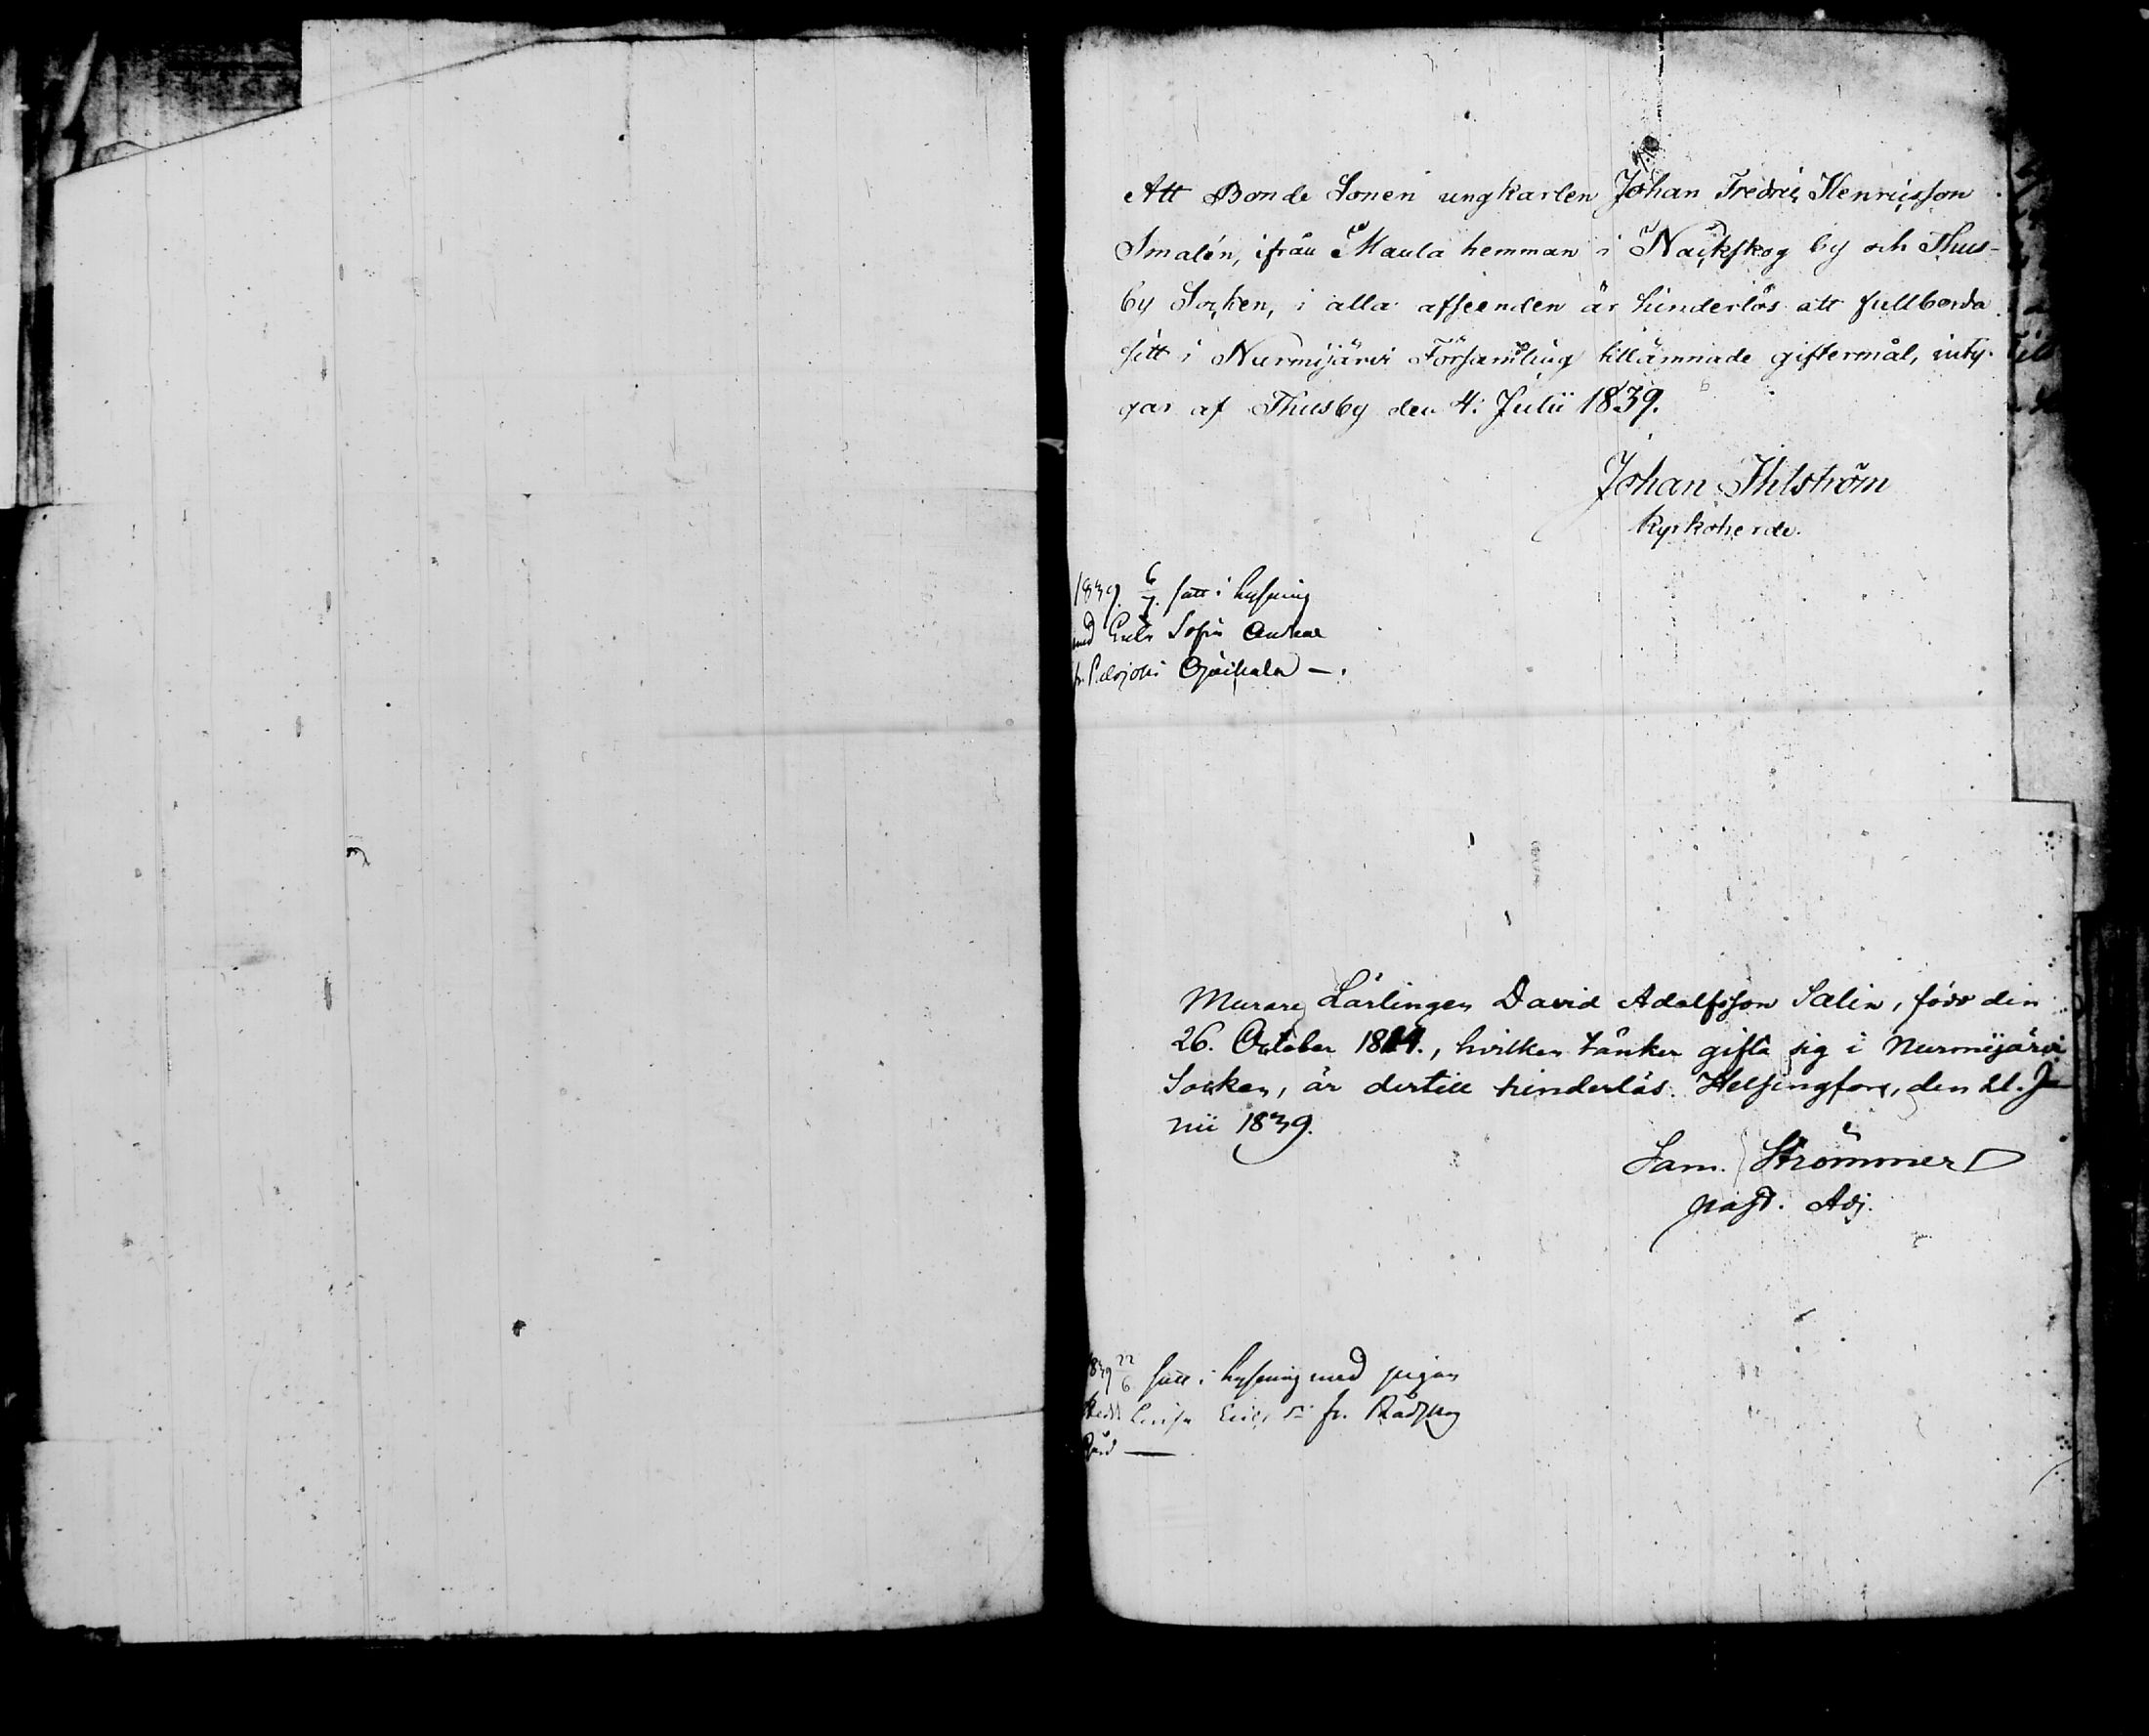 Att Bonde Sonen ungkarlen Johan Fredric Henricsson
Smalén, ifrån Maula hemman i Näckskog by och Thus-
by Socken, i alla afseenden är hinderlös att fullborda
sitt i Nurmijärvi Församling tillämnade giftermål, inty-
gar af Thusby den 4. Julii 1839.
Johan Ihlström
Kyrkoherde.
1839 6/7. satt i lysning
med Sofia
fr. Palojoki Ojakala —.
Murare Lärlingen David Adolfsson Salin, född den
26. October 1814., hvilken tänker gifta sig i Nurmijärvi
Socken, är dertill hinderlös. Helsingfors, den 21. Ju
nii 1839.
Sam. Strömmer
past. Adj.
1839 22/6 satt i lysning med pigan
Lovisa fr. Rådskog